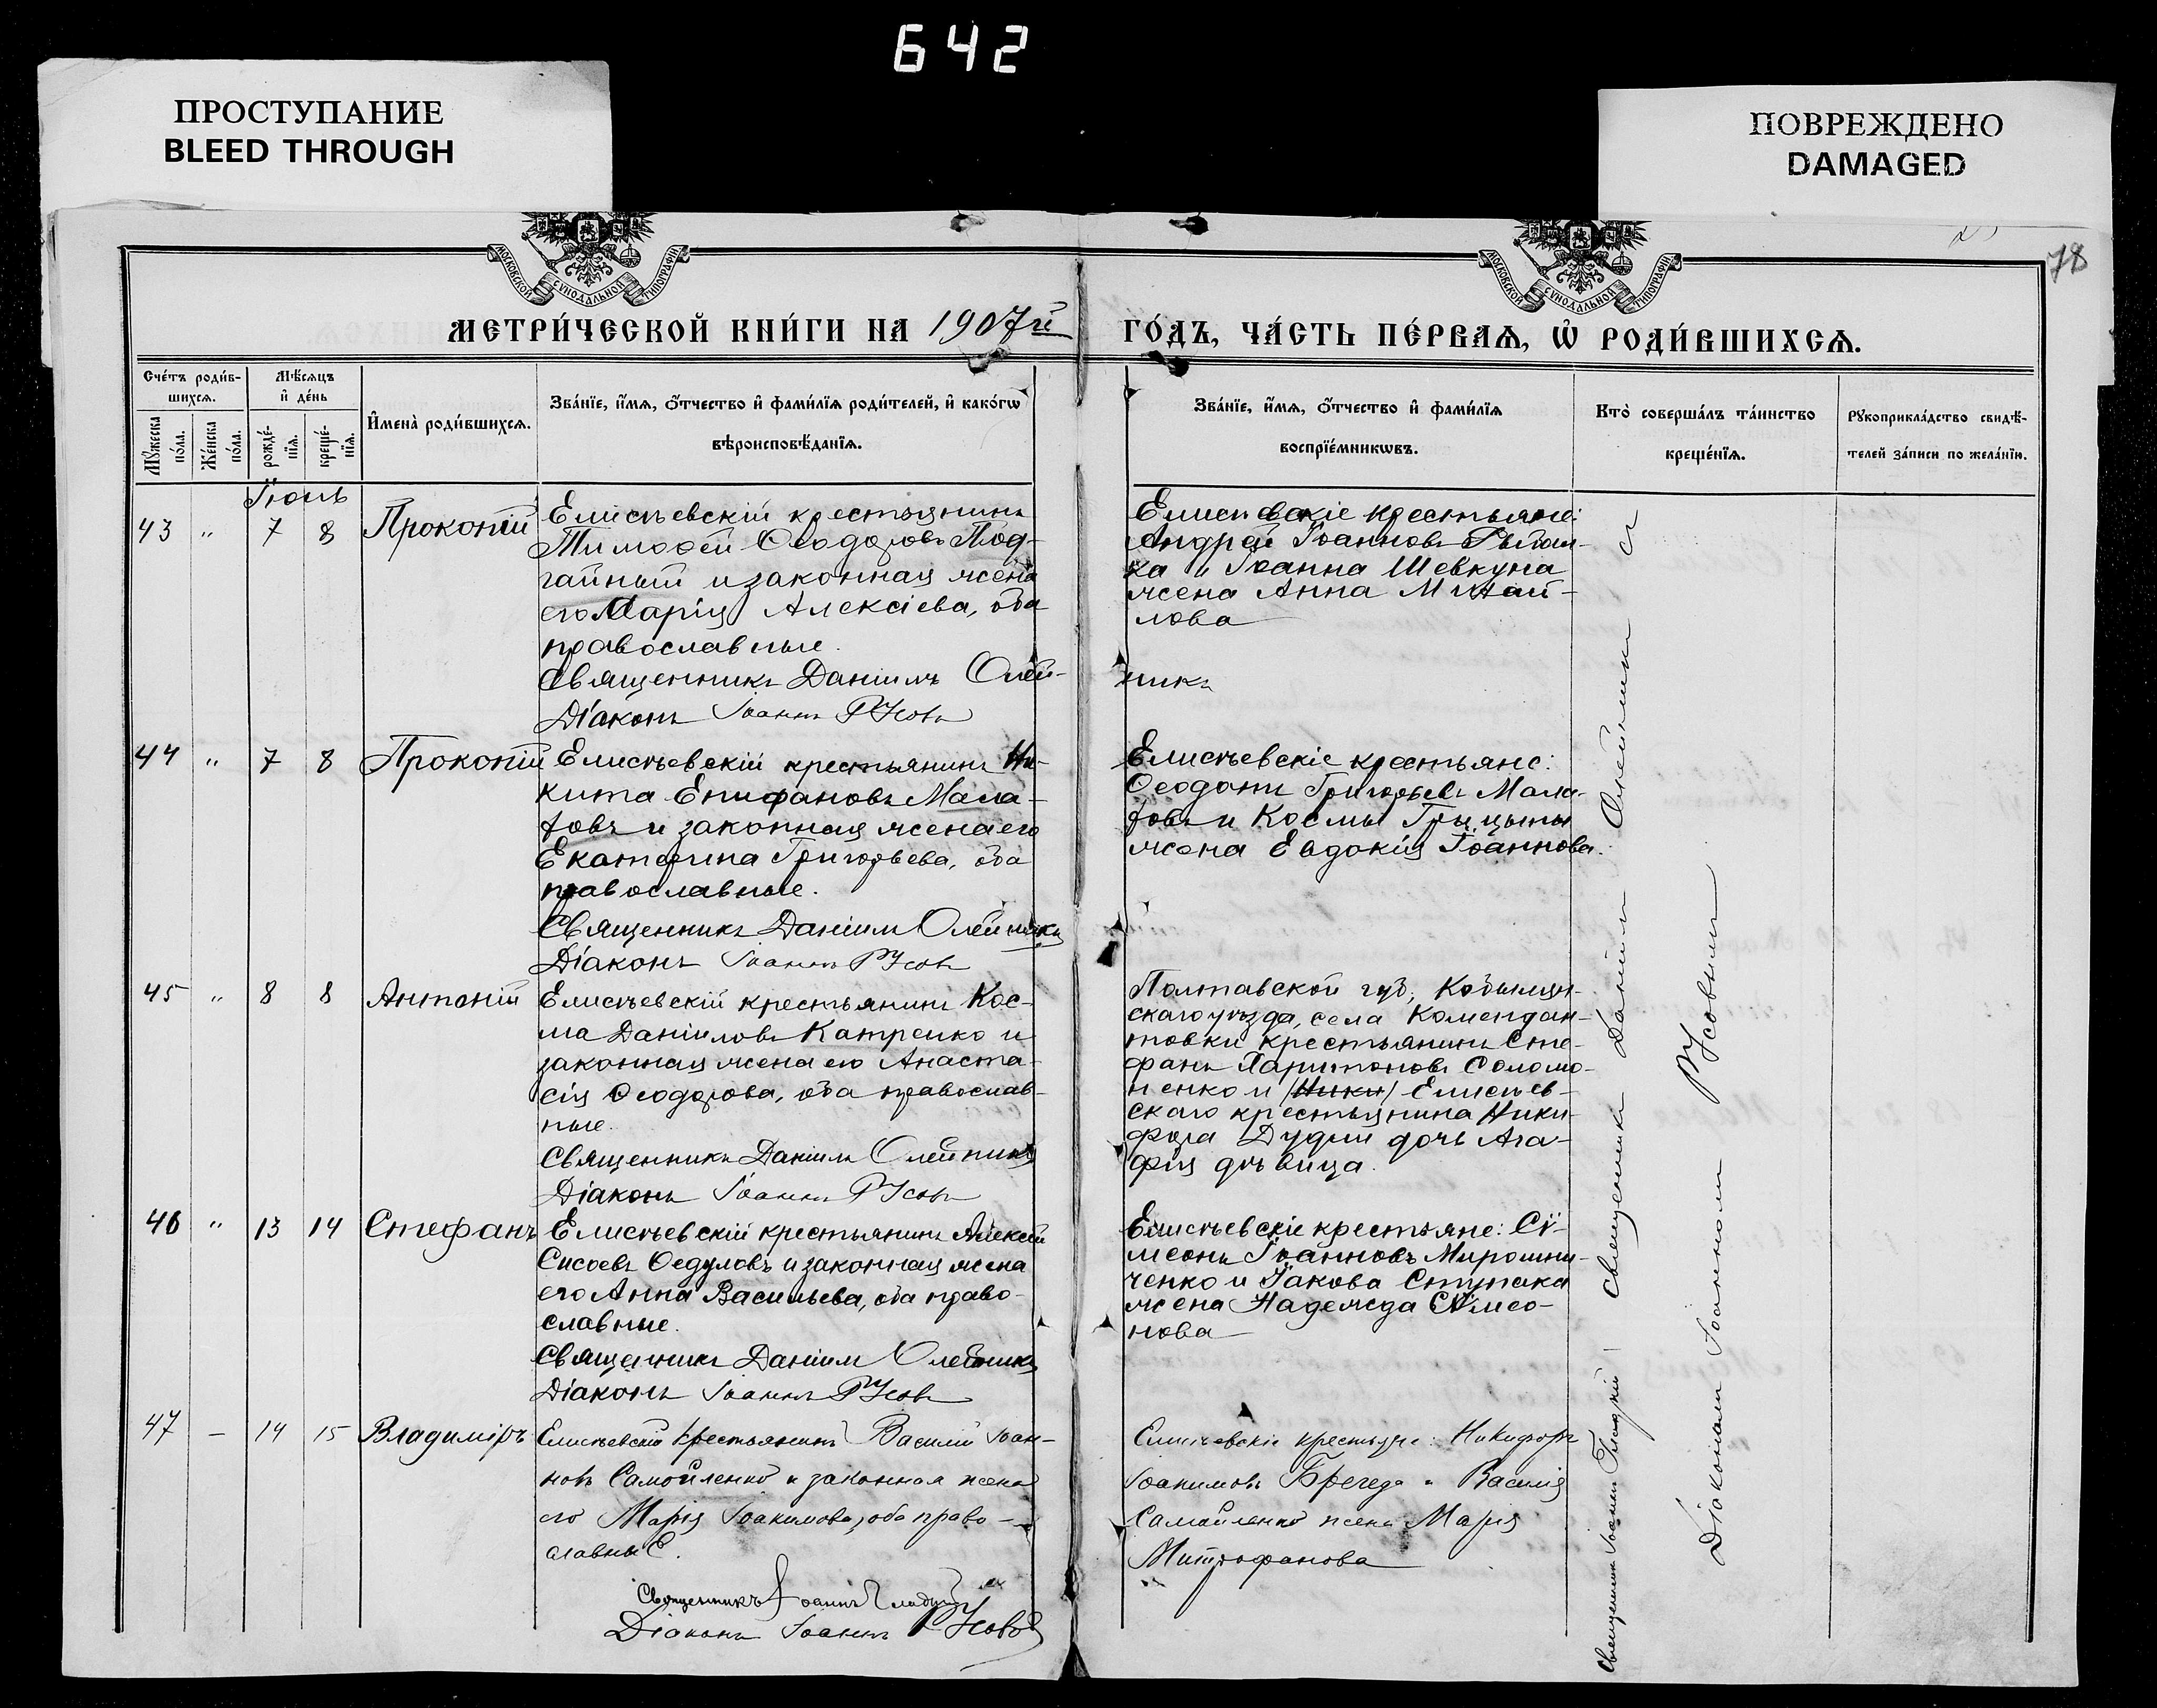 642
ПРОСТУПАНИЕ
BLEED THROUGH
ПОВРЕЖДЕНО
DAMAGED
78
МОСКОВСКОЙ СѴНОДАЛЬНОЙ ТИПОГРАФІИ
МОСКОВСКОЙ СѴНОДАЛЬНОЙ ТИПОГРАФІИ
МЕТРИ́ЧЕСКОЙ КНИ́ГИ НА 1907й ГО́ДЪ, ЧА́СТЬ ПЕ́РВАѦ, Ѡ҆ РОДИ́ВШИХСѦ.
Сче́тъ роди́в-
шихсѧ.
Мѣ́сѧцъ
и҆ де́нь
Мꙋ́жеска
по́ла.
Же́нска
по́ла.
рожде́-
нїѧ.
креще́-
нїѧ.
И҆мена̀ роди́вшихсѧ.
Зва́нїе, и҆́мѧ, ѻ҆́тчество и҆ фами́лїѧ роди́телей, и҆ како́гѡ
вѣроисповѣ́данїѧ.
Зва́нїе, и҆́мѧ, ѻ҆́тчество и҆ фами́лїѧ
воспрїе́мникѡвъ.
Кто̀ соверша́лъ та́инство
креще́нїѧ.
Рꙋкоприкла́дство свидѣ́-
телей за́писи по жела́нїю.
Іюль
43 " 7 8 Прокопій
Елисѣевскій крестьянинъ
Тимоѳей Ѳеодоровъ Под-
гайный и законная жена
его Марія Алексіева, оба
православные.
Священникъ Даніилъ Олей-
никъ
Діаконъ Іоаннъ Русовъ
Елисѣевскіе крестьяне:
Андрей Іоанновъ Рыбал-
ка и Іоанна Шевкуна
жена Анна Михай-
лова
44 " 7 8 Прокопій
Елисѣевскій крестьянинъ Ни-
кита Епифановъ Мала-
ховъ и законная жена его
Екатерина Григорьева, оба
православные.
Священникъ Даніилъ Олейникъ
Діаконъ Іоаннъ Русовъ
Елисѣевскіе крестьяне:
Григорьевъ Мала-
ховъ и Космы Грицыны
жена Евдокія Іоаннова.
45 " 8 8 Антоній
Елисѣевскій крестьянинъ Кос-
ма Даніиловъ Катренко и
законная жена его Анаста-
сія Ѳеодорова, оба православ-
ные.
Священникъ Даніилъ Олейникъ
Діаконъ Іоаннъ Русовъ
Полтавской губ., Кобыляк-
скаго уѣзда, села Комендан-
товки крестьянинъ Сте-
фанъ Харитоновъ Соломо-
ненко и (Ники) Елисѣев-
скаго крестьянина Ники-
фора Дудки дочь Ага-
фія дѣвица.
46 " 13 14 Стефанъ
Елисѣевскій крестьянинъ Алексій
Сисоевъ Ѳедуловъ и законная жена
его Анна Васильева, оба право-
славные.
Священникъ Даніилъ Олейникъ
Діаконъ Іоаннъ Русовъ
Елисѣевскіе крестьяне: Сѵ-
меонъ Іоанновъ Мирошни-
ченко и Іакова Ступака
жена Надежда Сѵмео-
нова
47 – 14 15 Владиміръ
Елисѣевскій крестьянинъ Василій Іоан-
новъ Самойленко и законная жена
его Марія Іоакимова, оба право-
славные.
Священникъ Іоаннъ Гладкій
Діаконъ Іоаннъ Русовъ
Елисѣевскіе крестьяне: Никифоръ
Іоакимовъ Брегеда и Василія
Самойленко жена Марія
Митрофанова
Священникъ Іоаннъ Гладкій
Священникъ Даніилъ Олейникъ съ
Діакономъ Іоанномъ Русовымъ